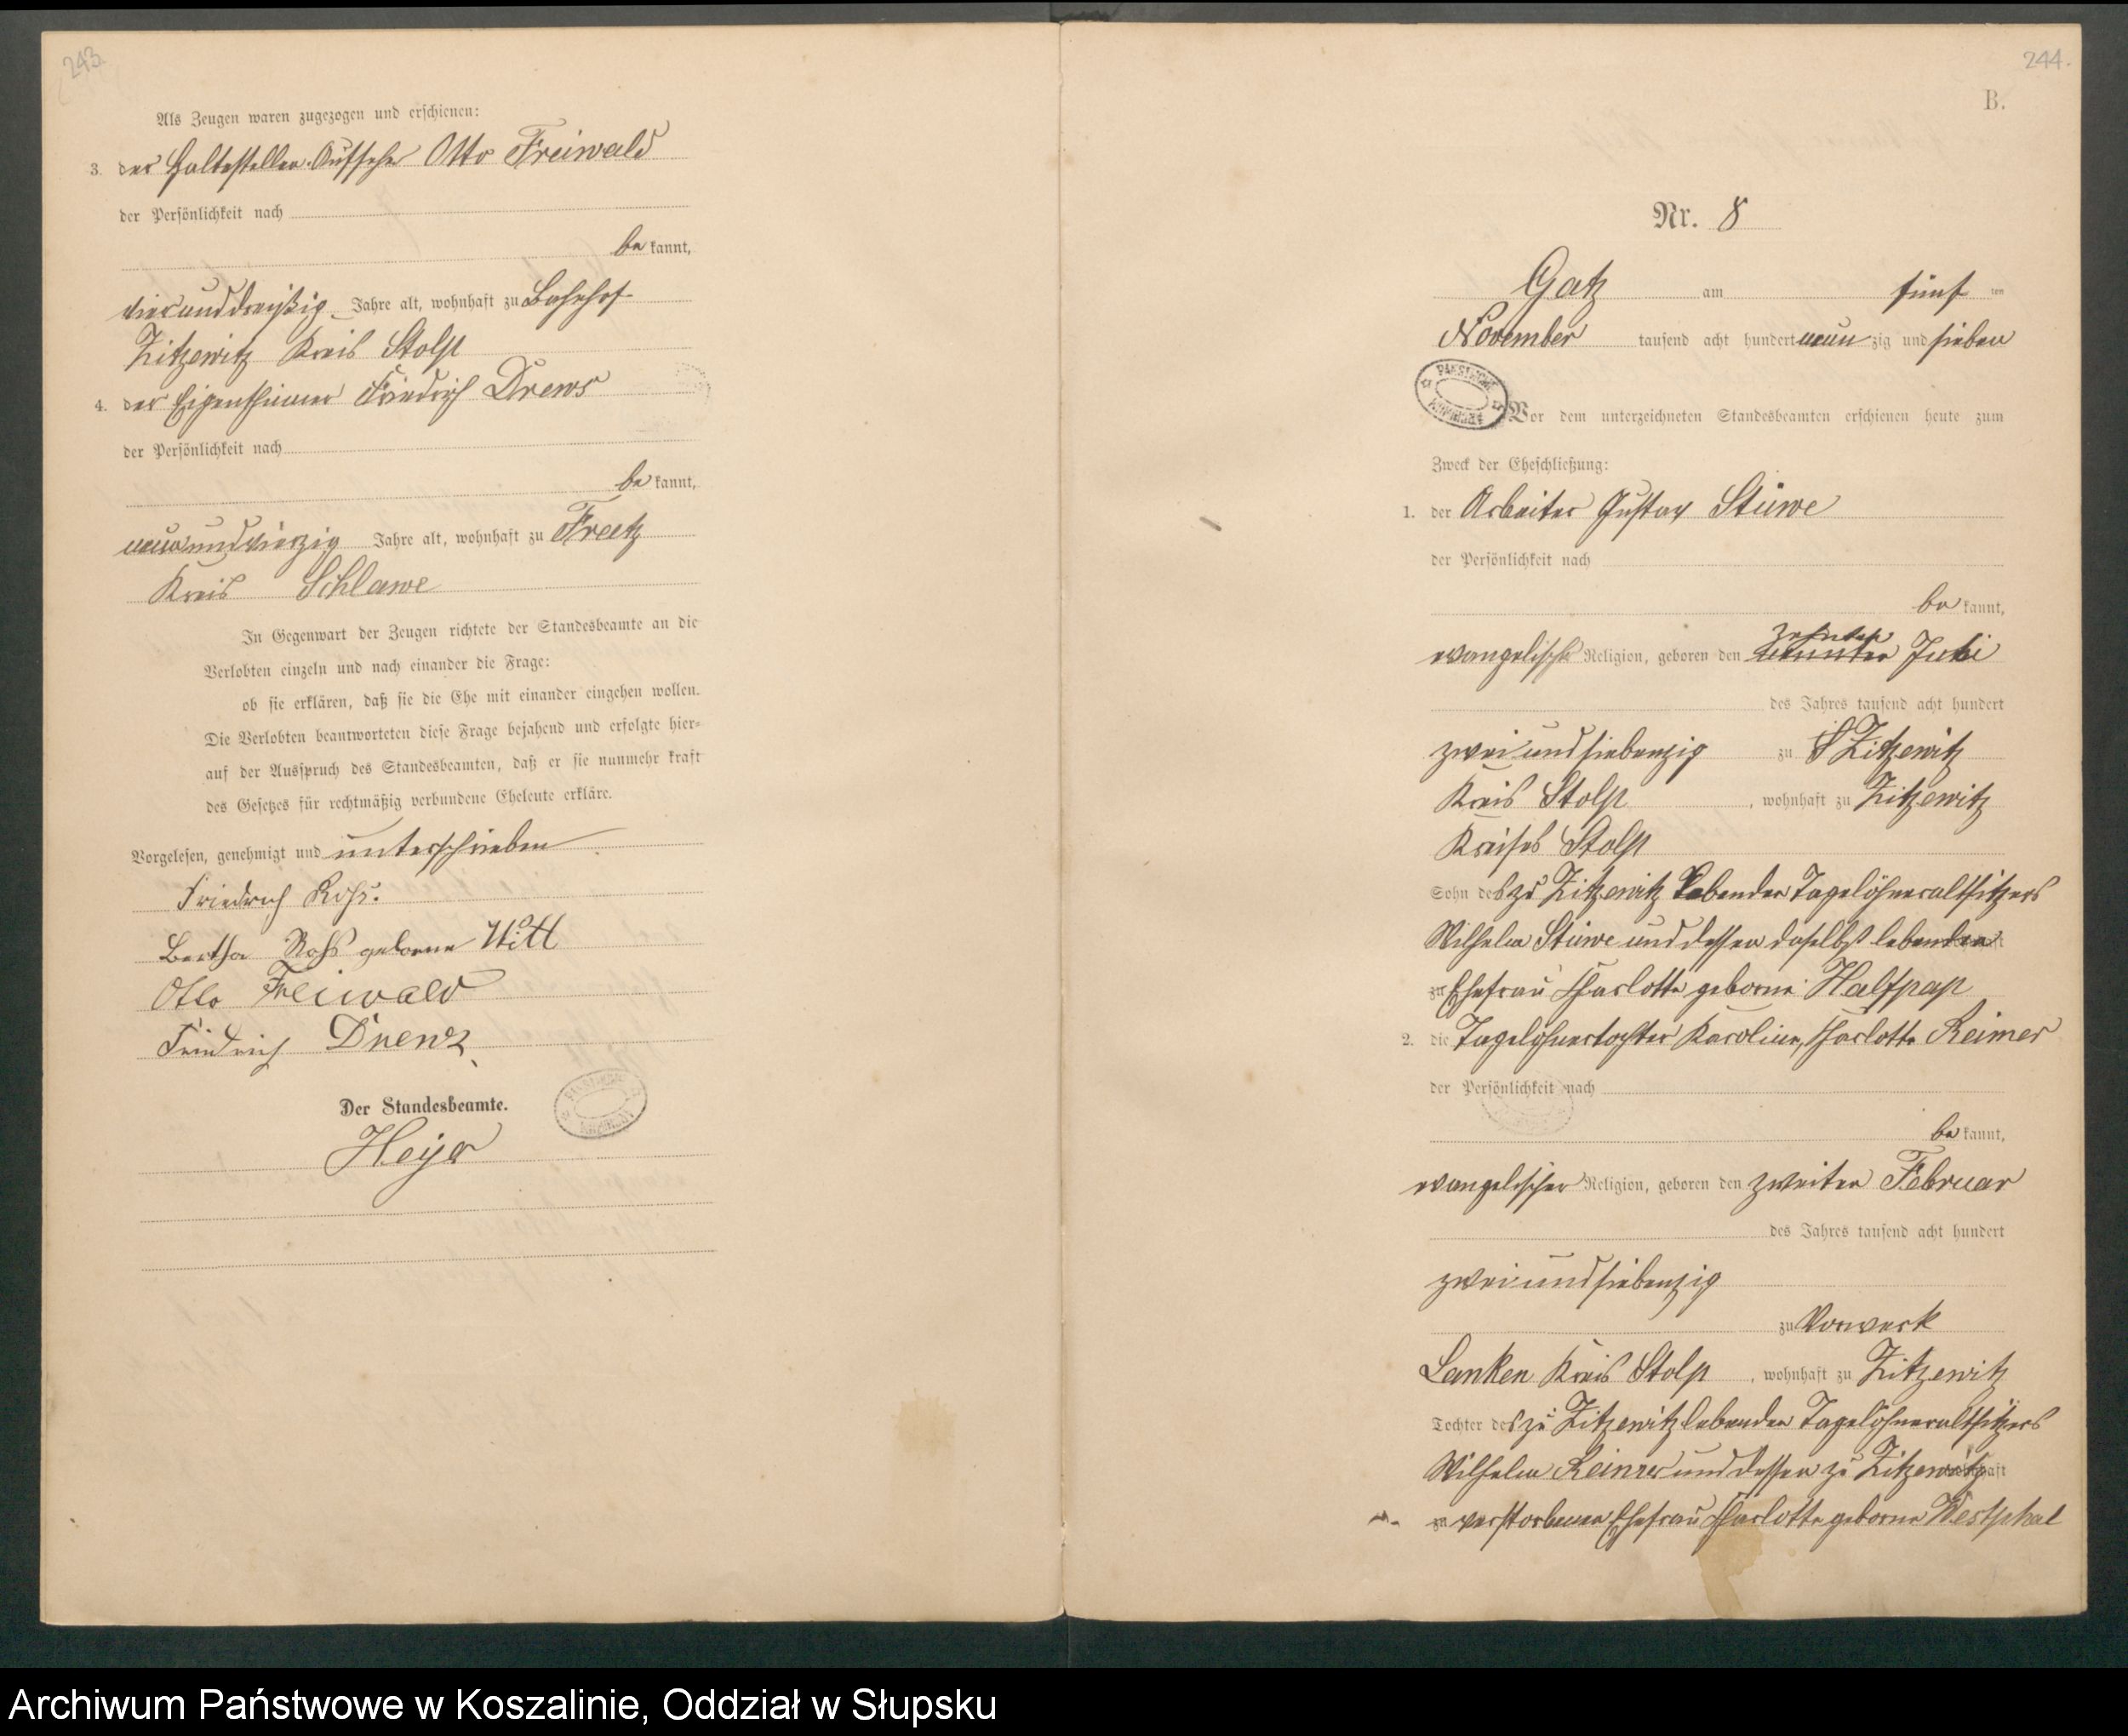 243.
Als Zeugen waren zugezogen und erschienen:
3. der Haltestellen-Aufseher Otto Freiwald
der Persönlichkeit nach
be kannt,
vierunddreißig Jahre alt, wohnhaft zu Bahnhof
Zitzewitz Kreis Stolp
4. der Eigenthümer Friedrich Drews
der Persönlichkeit nach
be kannt,
neunundvierzig Jahre alt, wohnhaft zu Freetz
Kreis Schlawe
In Gegenwart der Zeugen richtete der Standesbeamte an die
Verlobten einzeln und nach einander die Frage:
ob sie erklären, daß sie die Ehe mit einander eingehen wollen.
Die Verlobten beantworteten diese Frage bejahend und erfolgte hier-
auf der Ausspruch des Standesbeamten, daß er sie nunmehr kraft
des Gesetzes für rechtmäßig verbundene Eheleute erkläre.
Vorgelesen, genehmigt und unterschrieben
Friedrich Roß.
Bertha Roß geborne Witt
Otto Freiwald
Friedrich Drews
Der Standesbeamte.
244.
B.
Nr. 8
Gatz am fünf ten
November tausend acht hundert neun zig und sieben
Vor dem unterzeichneten Standesbeamten erschienen heute zum
Zweck der Eheschließung:
1. der Arbeiter Gustav Stüwe
der Persönlichkeit nach
be kannt,
evangelischer Religion, geboren den zehnten Juli
des Jahres tausend acht hundert
zweiundsiebenzig zu Zitzewitz
Kreis Stolp, wohnhaft zu Zitzewitz
Kreises Stolp
Sohn des zu Zitzewitz lebenden Tagelöhneraltsitzers
Wilhelm Stüwe und dessen daselbst lebenden
zu Ehefrau Charlotte geborne Halfpap
2. die Tagelöhnertochter Karoline, Charlotte Reimer
der Persönlichkeit nach
be kannt,
evangelischer Religion, geboren den zweiten Februar
des Jahres tausend acht hundert
zweiundsiebenzig
zu Vorwerk
Lanken Kreis Stolp, wohnhaft zu Zitzewitz
Tochter des zu Zitzewitz lebenden Tagelöhneraltsitzers
Wilhelm Reimer und dessen zu Zitzewitz
zu verstorbenen Ehefrau Charlotte geborne Westphal
Archiwum Państwowe w Koszalinie, Oddział w Słupsku